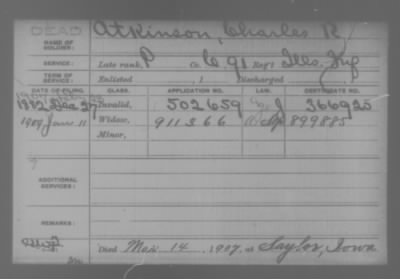 DEAD
Atkinson, Charles R.
NAME OF SOLDIER:
SERVICE: Late rank, P Co. G 91 Reg't Ills. Inf
TERM OF SERVICE: Enlisted , 1 Discharged , 1
DATE OF FILING. CLASS. APPLICATION NO. LAW. CERTIFICATE NO.
1882 Dec 27 Invalid, 502659 J 366925
1909 June 11 Widow, 911366 899885
Minor,
ADDITIONAL SERVICES:
REMARKS:
Died Mar 14, 1907, at Saylor, Iowa